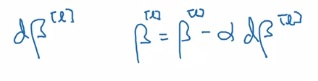 dβ^[l]   β^[l] = β^[l] - α dβ^[l]